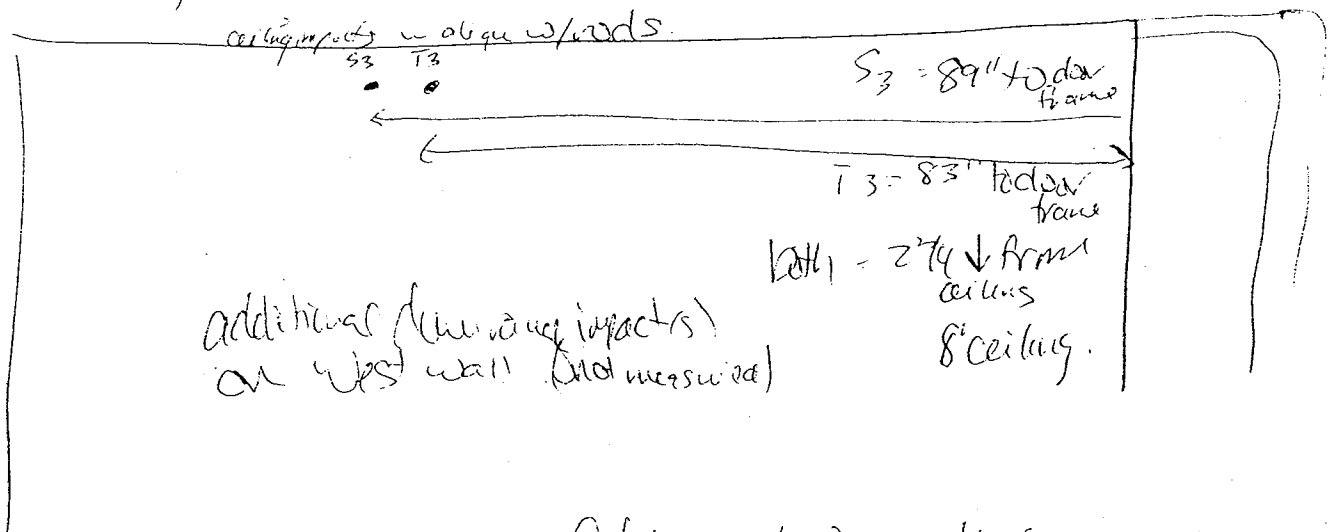 ceiling impacts align w/rods.
S3 T3
S3 = 89" to door
frame
T3 = 83" to door
frame
both = 2 3/4 ↓ from
ceiling
additional impact(s)
on West wall (not measured)
8' ceiling.